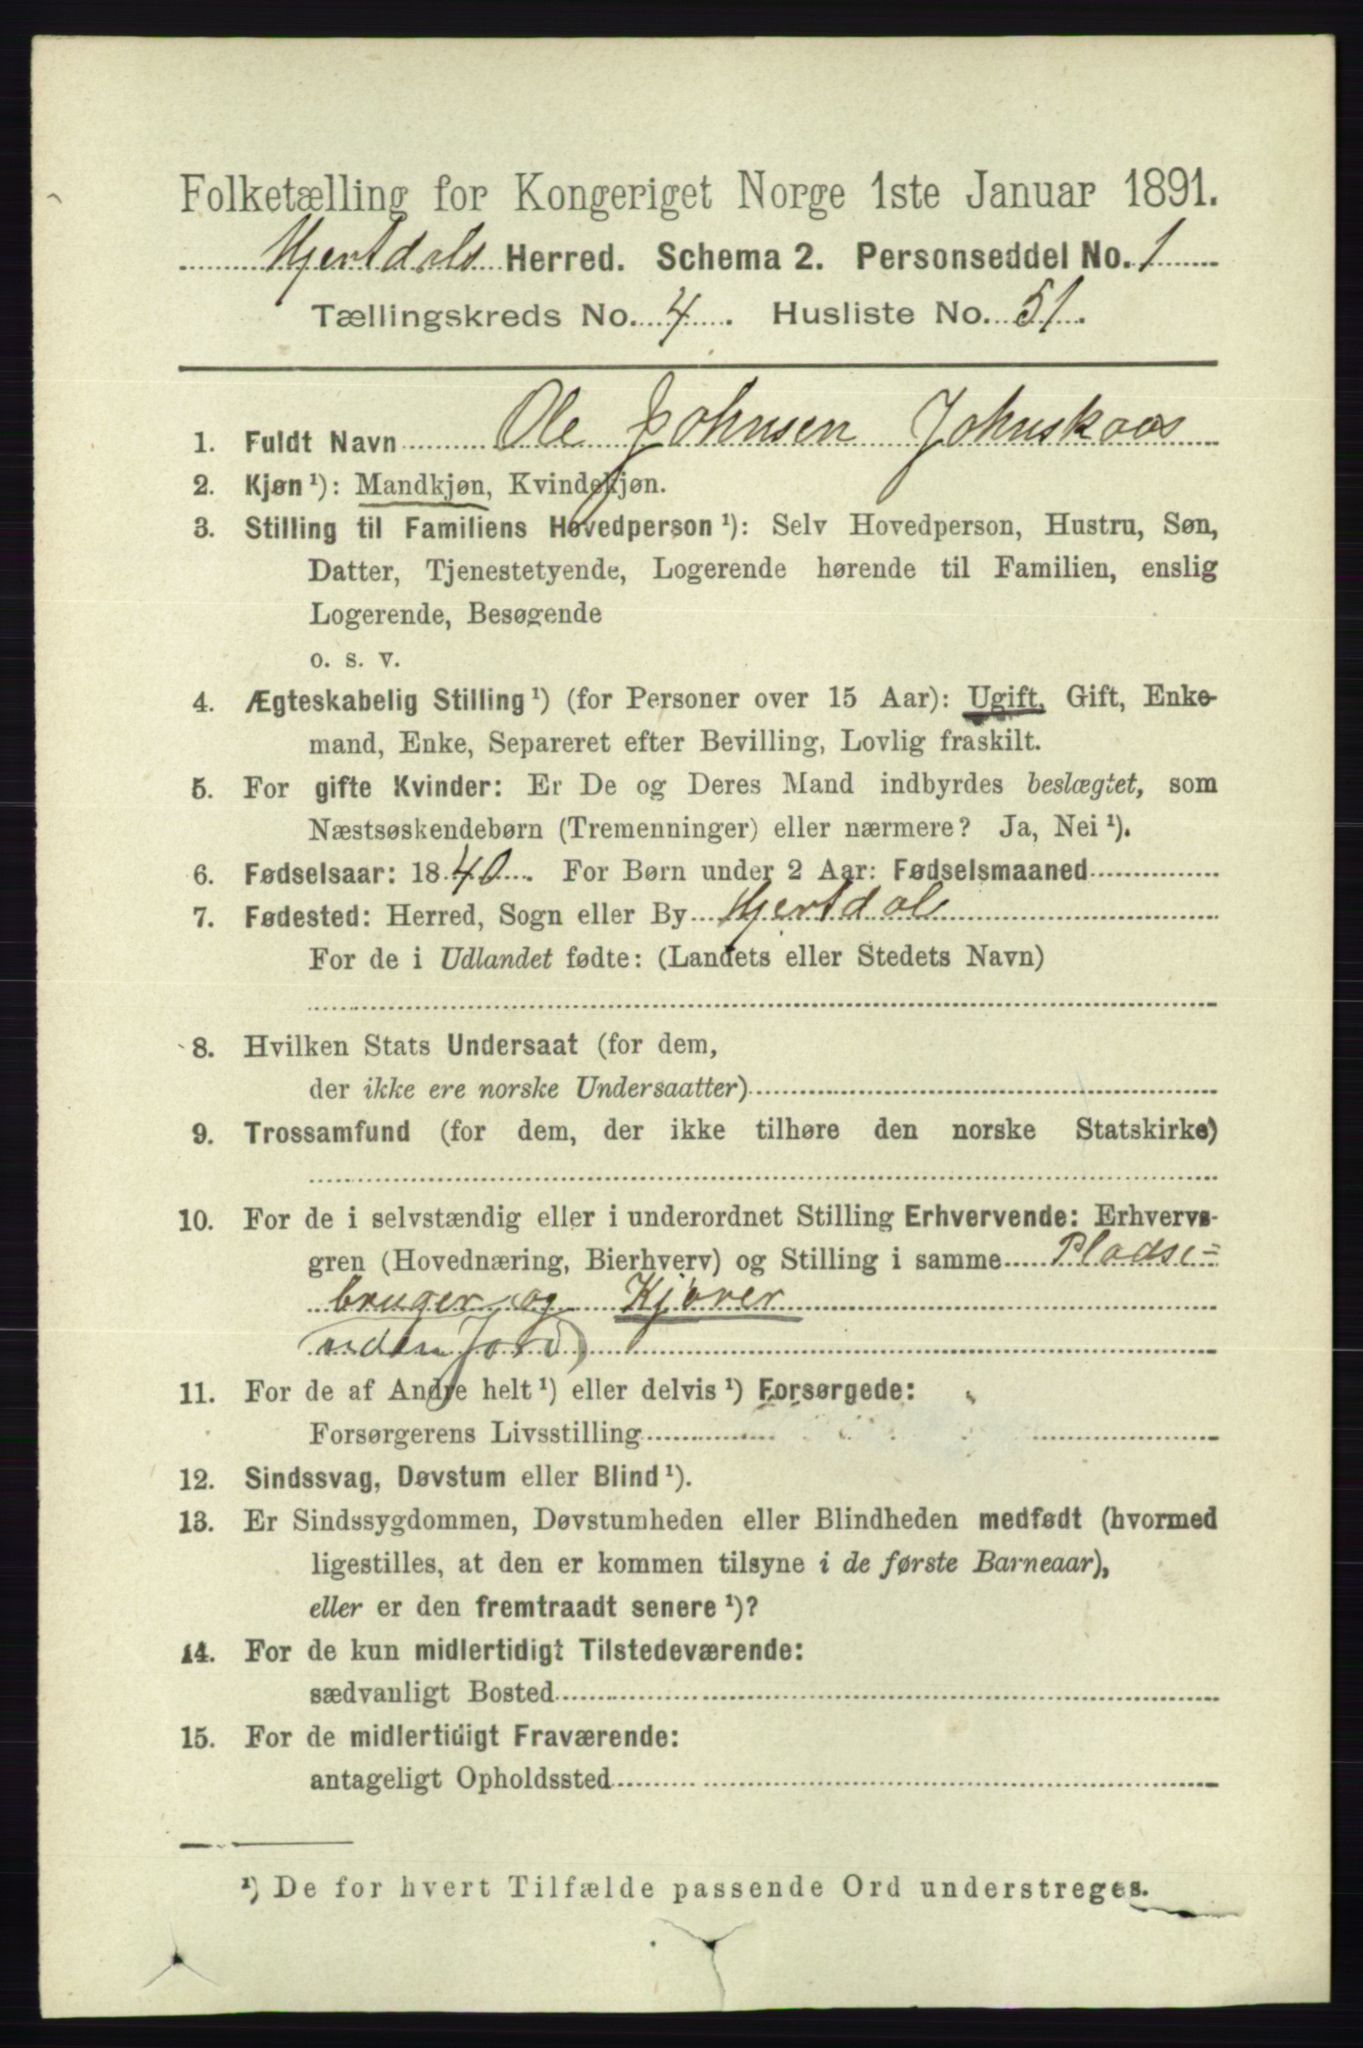 Folketælling for Kongeriget Norge 1ste Januar 1891.
Hjertdals Herred. Schema 2. Personseddel No. 1
Tællingskreds No. 4. Husliste No. 51.
1. Fuldt Navn Ole Johnsen Johnskaas
2. Kjøn ¹): Mandkjøn, Kvindekjøn.
3. Stilling til Familiens Hovedperson ¹): Selv Hovedperson, Hustru, Søn,
Datter, Tjenestetyende, Logerende hørende til Familien, enslig
Logerende, Besøgende
o. s. v.
4. Ægteskabelig Stilling ¹) (for Personer over 15 Aar): Ugift, Gift, Enke-
mand, Enke, Separeret efter Bevilling, Lovlig fraskilt.
5. For gifte Kvinder: Er De og Deres Mand indbyrdes beslægtet, som
Næstsøskendebørn (Tremenninger) eller nærmere? Ja, Nei ¹).
6. Fødselsaar: 1840. For Børn under 2 Aar: Fødselsmaaned
7. Fødested: Herred, Sogn eller By Hjertdal
For de i Udlandet fødte: (Landets eller Stedets Navn)
8. Hvilken Stats Undersaat (for dem,
der ikke ere norske Undersaatter)
9. Trossamfund (for dem, der ikke tilhøre den norske Statskirke)
10. For de i selvstændig eller i underordnet Stilling Erhvervende: Erhvervs-
gren (Hovednæring, Bierhverv) og Stilling i samme Pladse=
bruger og Kjører
(uden Jord)
11. For de af Andre helt ¹) eller delvis ¹) Forsørgede:
Forsørgerens Livsstilling
12. Sindssvag, Døvstum eller Blind ¹).
13. Er Sindssygdommen, Døvstumheden eller Blindheden medfødt (hvormed
ligestilles, at den er kommen tilsyne i de første Barneaar),
eller er den fremtraadt senere ¹)?
14. For de kun midlertidigt Tilstedeværende:
sædvanligt Bosted
15. For de midlertidigt Fraværende:
antageligt Opholdssted
¹) De for hvert Tilfælde passende Ord understreges.